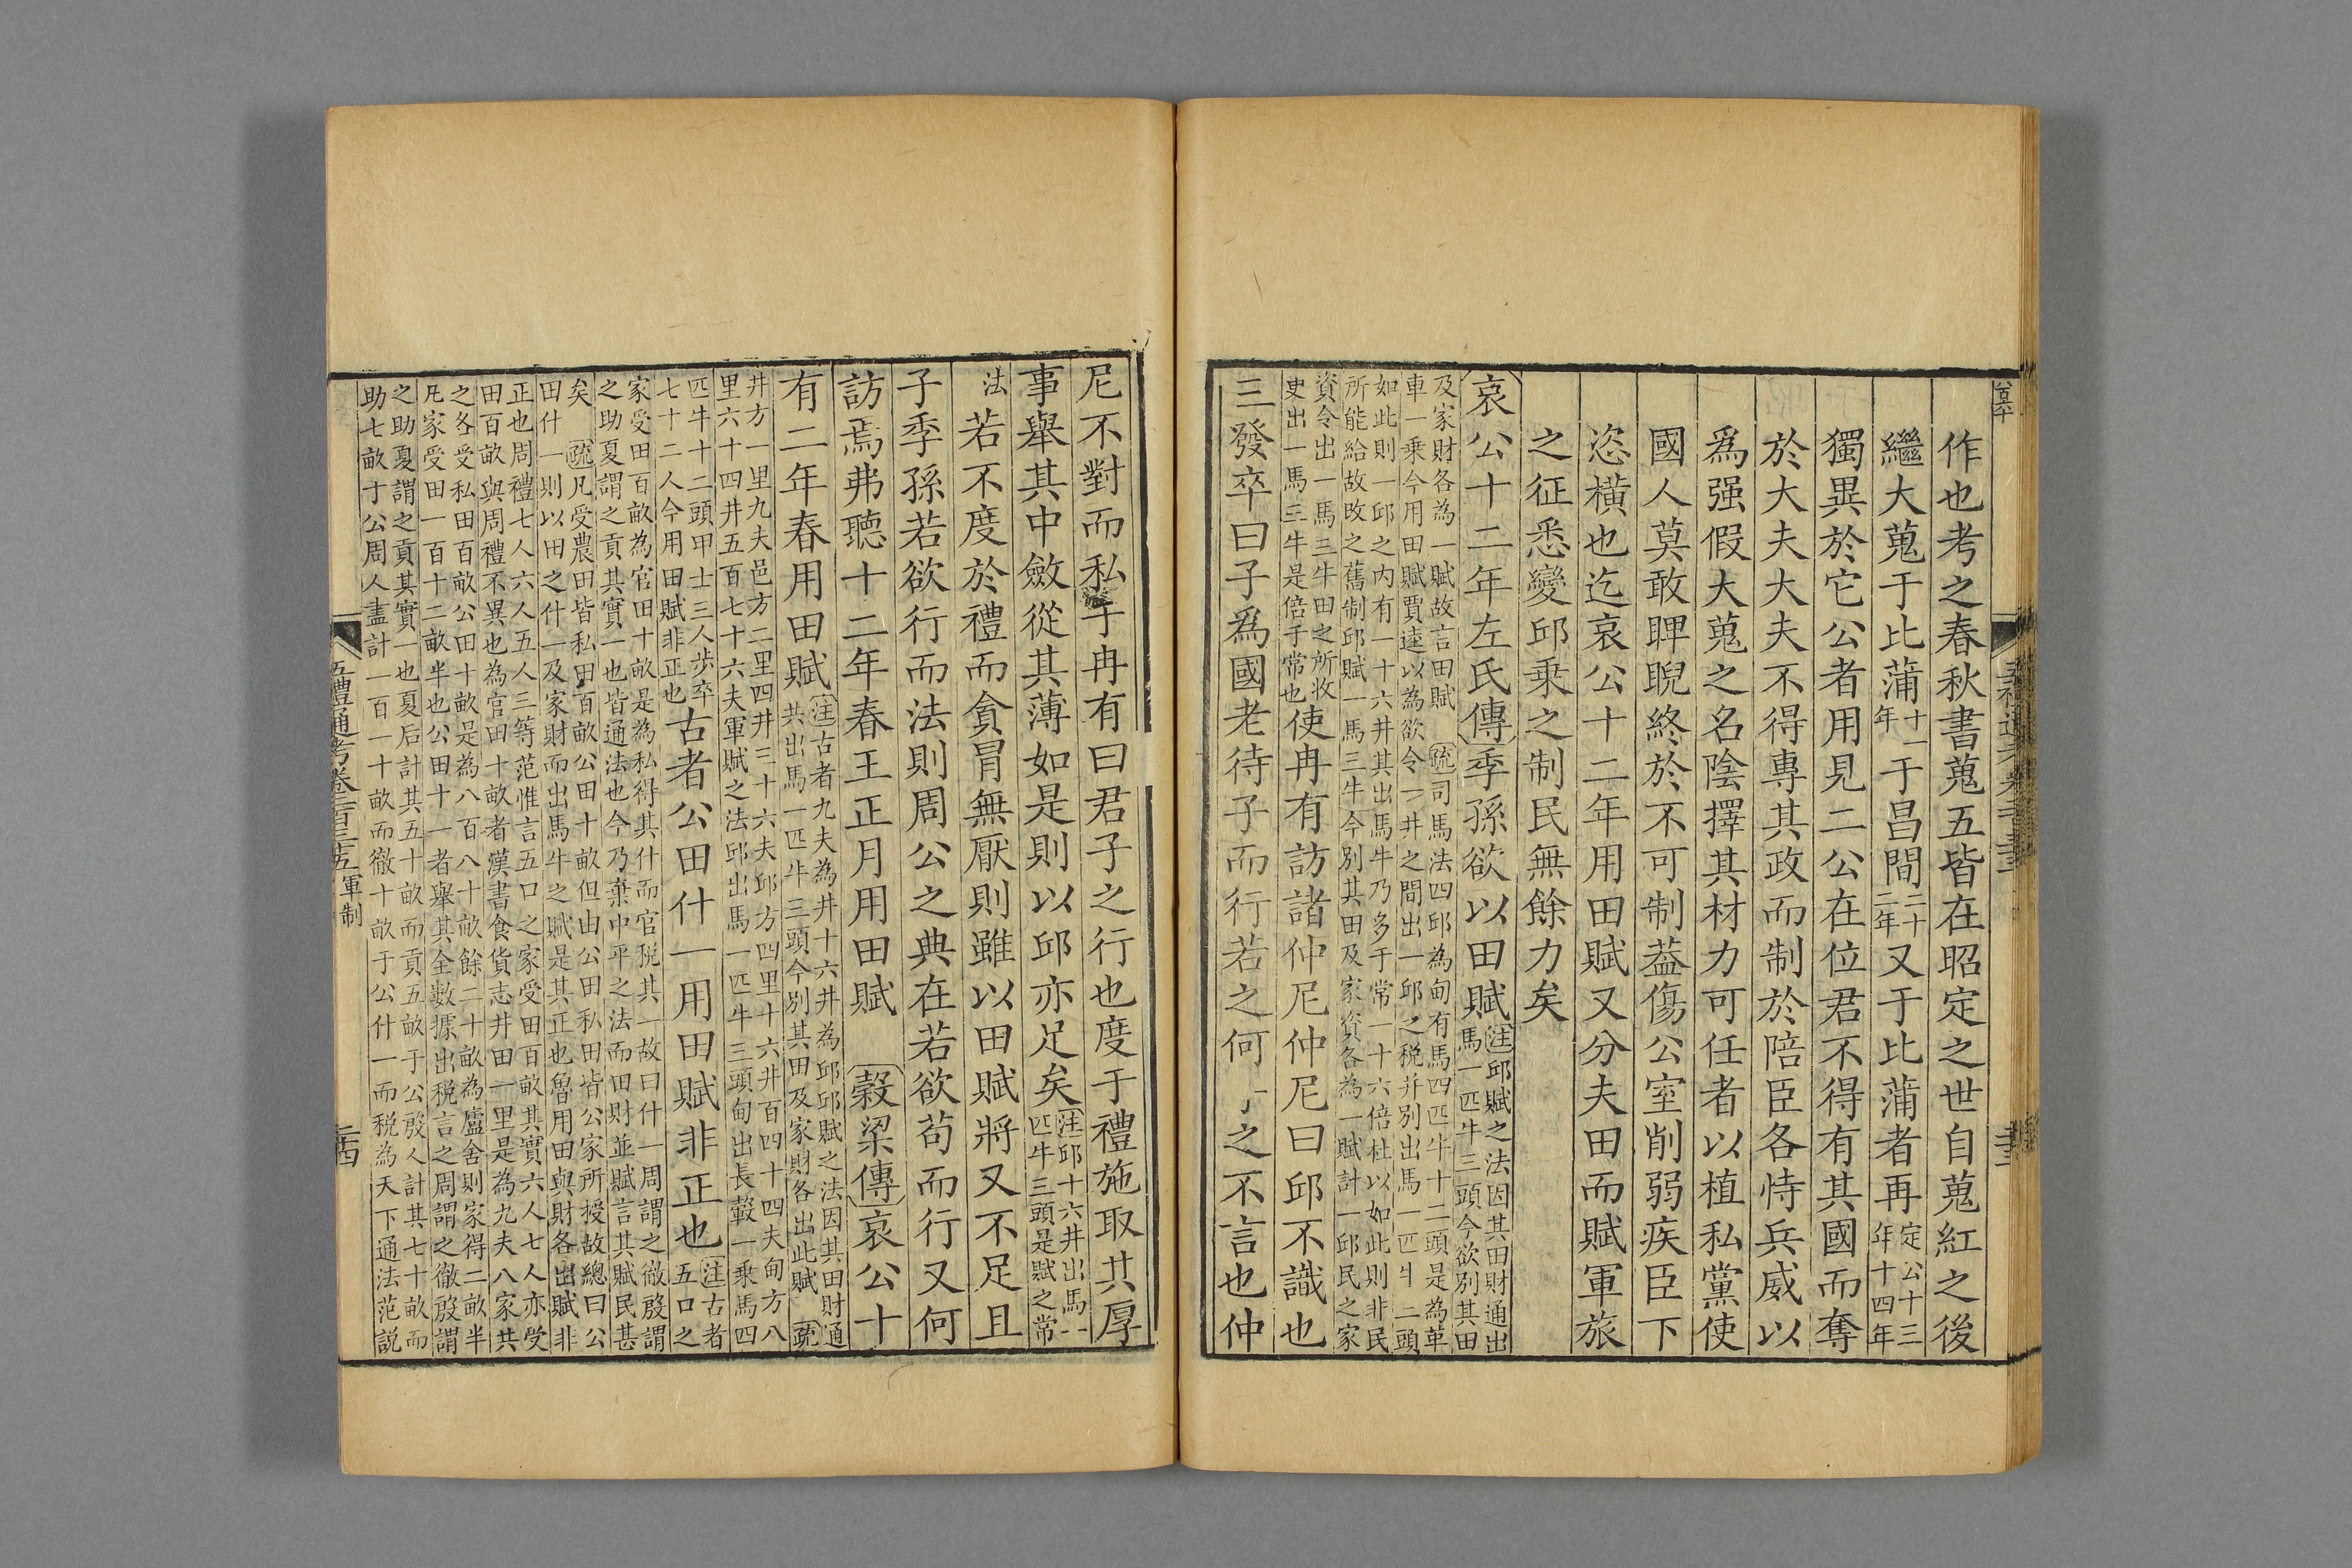 作也考之春秋書蒐五皆在昭定之世自蒐紅之後
繼大蒐于比蒲十一年于昌間二十二年又于比蒲者再定公十三年十四年
獨異於它公者用見二公在位君不得有其國而奪
於大夫大夫不得專其政而制於陪臣各恃兵威以
爲强假大蒐之名陰擇其材力可任者以植私黨使
國人莫敢睥睨終於不可制葢傷公室削弱疾臣下
恣橫也迄哀公十二年用田賦又分夫田而賦軍旅
之征悉變邱乗之制民無餘力矣
哀公十二年左氏傳季孫欲以田賦注邱賦之法因其田財通出馬一匹牛三頭今欲別其田
及家財各為一賦故言田賦 疏司馬法四邱為甸有馬四匹牛十二頭是為革
車一乗今用田賦賈逵以為欲令一井之間出一邱之税井別出馬一匹牛二頭
如此則一邱之内有一十六井其出馬牛乃多于常一十六倍杜以如此則非民
所能給故改之舊制邱賦一馬三牛今別其田及家資各為一賦計一邱民之家
資令出一馬三牛田之所收
更出一馬三牛是倍于常也使冉有訪諸仲尼仲尼曰邱不識也
三發卒曰子爲國老待子而行若之何 之不言也仲
尼不對而私于冉有曰君子之行也度于禮施取其厚
事舉其中斂從其薄如是則以邱亦足矣注邱十六井出馬一匹牛三頭是賦之常
法若不度於禮而貪冒無厭則雖以田賦將又不足且
子季孫若欲行而法則周公之典在若欲苟而行又何
訪焉弗聽十二年春王正月用田賦 穀梁傳哀公十
有二年春用田賦注古者九夫為井十六井為邱邱賦之法因其田財通共出馬一匹牛三頭今別其田及家財各出此賦 疏
井方一里九夫邑方二里四井三十六夫邱方四里十六井百四十四夫甸方八
里六十四井五百七十六夫軍賦之法邱出馬一匹牛三頭甸出長轂一乗馬四
匹牛十二頭甲士三人步卒
七十二人今用田賦非正也古者公田什一用田賦非正也注古者五口之
家受田百畝為官田十畝是為私得其什而官税其一故曰什一周謂之徹殷謂
之助夏謂之貢其實一也皆通法也今乃棄中平之法而田財並賦言其賦民甚
矣 疏凡受農田皆私田百畝公田十畝但由公田私田皆公家所授故總曰公
田什一則以田之什一及家財而出馬牛之賦是其正也魯用田與財各出賦非
正也周禮七人六人五人三等范惟言五口之家受田百畝其實六人七人亦受
田百畝與周禮不異也為官田十畝者漢書食貨志井田一里是為九夫八家共
之各受私田百畝公田十畝是為八百八十畝餘二十畝為廬舍則家得二畝半
凡家受田一百十二畝半也公田十一者舉其全數據出税言之周謂之徹殷謂
之助夏謂之貢其實一也夏后計其五十畝而貢五畝于公殷人計其七十畝而
助七畝于公周人盡計一百一十畝而徹十畝于公什一而税為天下通法范説
五禮通考卷二百三十五軍制
二十四